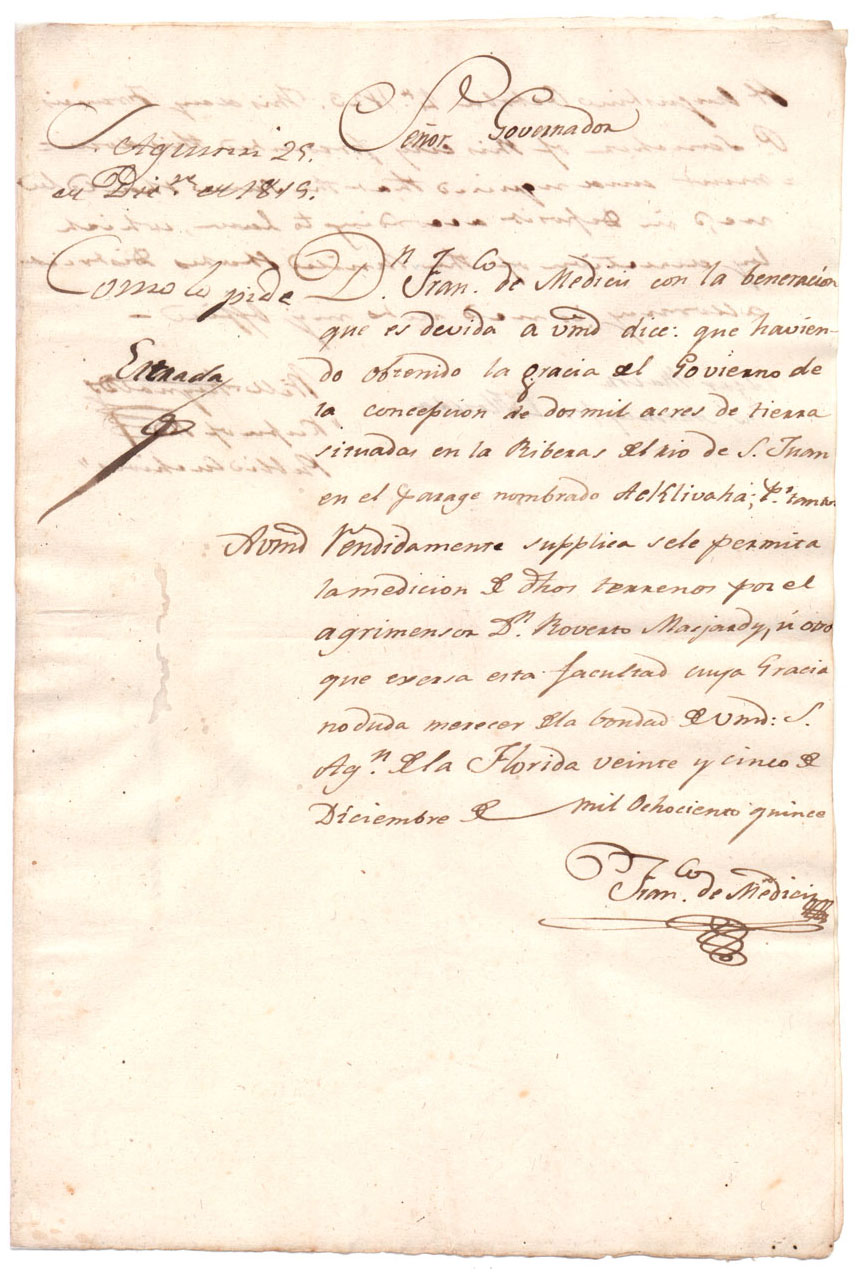 Señor Governador
S. Agustin 25.
de Dic.re de 1815.
Como lo pide
Estrada
D.n Fran.co de Medicis con la beneracion
que es devida a Vmd dice: que havien-
do obtenido la gracia del Govierno de
la concepcion de dos mil acres de tierra
situadas en la Riberas del rio de S. Juan
en el parage nombrado Acklivaha; P.r tanto
A Vmd Rendidamente supplica sele permita
la medicion de dhos terrenos por el
agrimensor D.n Roverto Macjardy, ú otro
que exersa esta facultad cuya Gracia
no duda merecer de la bondad de Vmd: S.
Ag.n de la Florida veinte y cinco de
Diciembre de mil Ochociento quince
Fran.co de Medicis